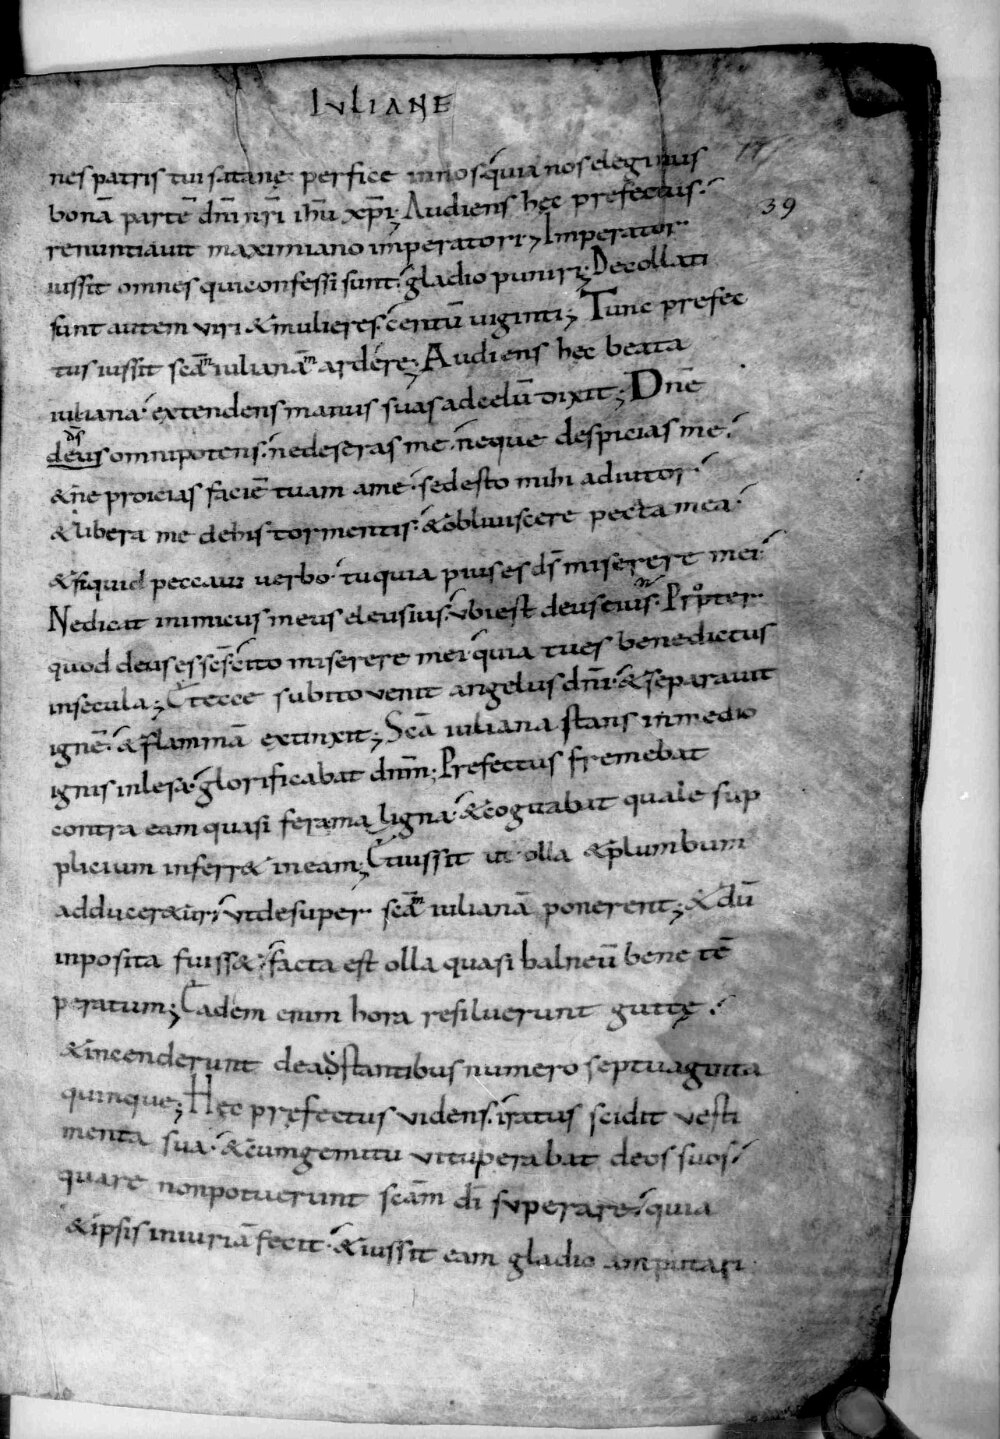 IVLIANE
39
nes patris tui satanę perfice in nos quia nos elegimus
bonā partē dn̄i nr̄i ihū xp̄i; Audiens hęc prefectus
renuntiavit maximiano imperatori; Imperator
iussit omnes qui confessi sunt gladio puniri; Decollati
sunt autem viri & mulieres centū viginti; Tunc prefec
tus iussit scām iulianām ardere; Audiens hęc beata
iuliana extendens manus suas ad celū dixit; Dn̄e
ds̄
deus omnipotens ne deseras me neque despicias me
& ne proicias faciē tuam a me sed esto mihi adiutor
& libera me de his tormentis & obliviscere peccta mea
& siquid peccavi verbo tu quia pius es ds̄ miserere mei
Ne dicat inimicus meus eleusius ubi est deus eius Propter
quod deus es scs̄ cito miserere mei quia tu es benedictus
in secula; Et ecce subito venit angelus dn̄i & separavit
ignē & flammā extinxit; Scā iuliana stans in medio
ignis inlesa glorificabat dn̄m; Prefectus fremebat
contra eam quasi fera maligna & cogitabat quale sup
plicium inferr& in eam; Et iussit ut olla & plumbum
adducer&ur ut desuper scām iulianā ponerent; & dū
inposita fuiss& facta est olla quasi balneū bene tē
peratum; Eadem enim hora resiluerunt guttę
& incenderunt de adstantibus numero septuaginta
quinque; Hęc pręfectus videns iratus scidit vesti
menta sua & cum gemitu vituperabat deos suos
quare non potuerunt scām dī superare quia
& ipsis iniuriā fecit & iussit eam gladio amputari